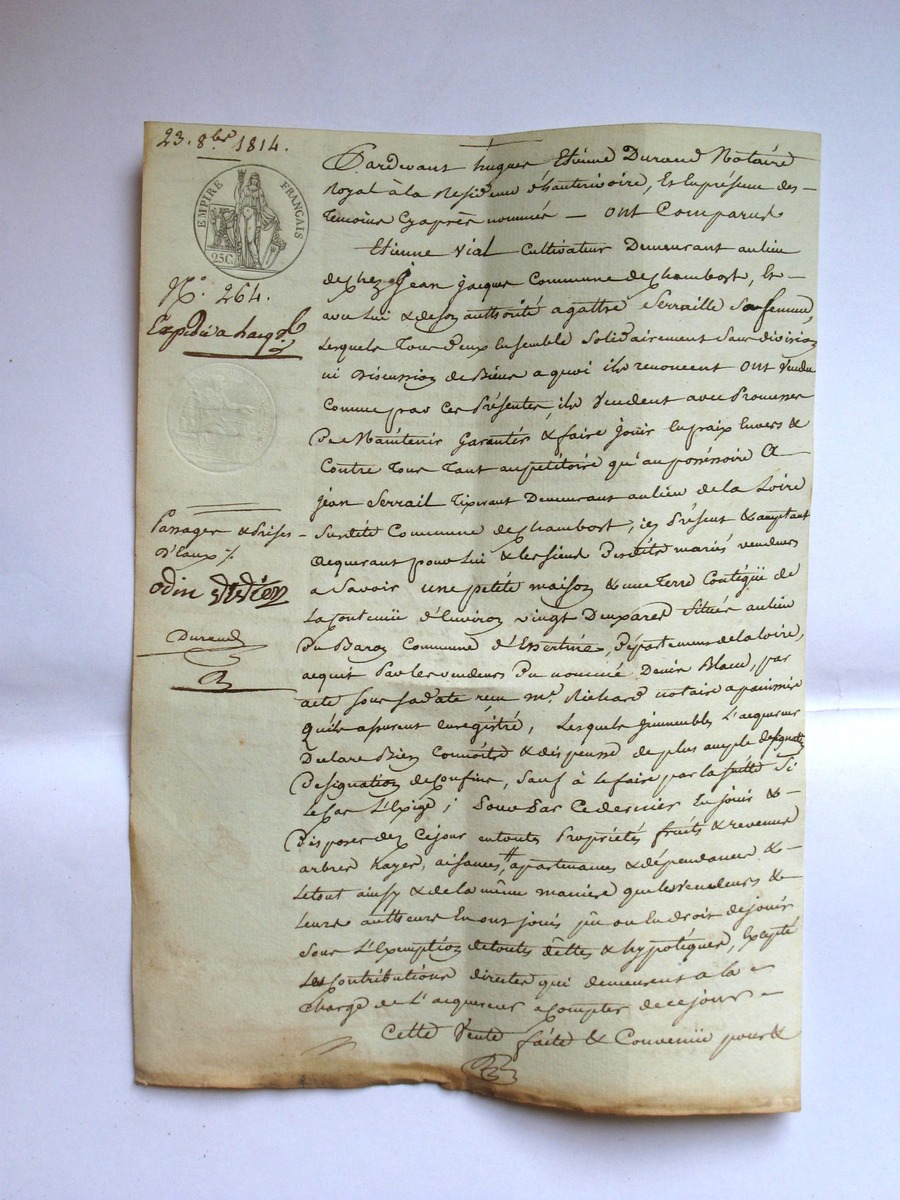 23. 8bre 1814.
EMPIRE FRANÇAIS
25C.
N°. 264.
Expédié a l'acqr
Passages & Prises
D'Eaux %
odin
Durand
Pardevant hugues Etienne Durand Notaire
Royal à la Residence d'hauterivoire, Et En présence des
Temoins Cyaprès nommés — ont Comparus
Etienne Vial Cultivateur Demeurant au lieu
de chez Jean Jacques Commune de Chambost, Et
avec Lui & de son authorité agathe Serraille Sa femme,
Lesquels Tous deux Ensemble Solidairement Sans division
ni Discussion de Biens a quoi ils renoncent ont Vendu
Comme par Ces Présentes, ils Vendent avec Promesses
De Maintenir Garantir & faire Jouir En paix Envers &
Contre Tous Tant au petitoire qu'au poséssoire A
Jean Serrail Tixerant Demeurant au lieu de la Loire
Susdite Commune de Chambost, icy Présent & acceptant
acquerant pour Lui & les siens Desdits mariés vendeurs
a Savoir une petite maison & une Terre Contigüe de
La Contenüe d'Environ vingt Deux ares Situés au lieu
Du Baron Commune d'Essertines, Département de la loire,
acquis Par les vendeurs Du nommé Denis Blanc, par
acte sous sa date reçu me. Richard notaire a panissiere
qu'ils assurent Enregistré, Lesquels Immeubles L'acquereur
Declare Bien Connoitre & dispense de plus ample
Designation de Confins, Sauf à le faire par la suitte Si
le Cas L'Exige; Pour Par Ce dernier En Jouir &
Disposer dez Cejour en toute Propriétés fruits & revenus
arbres hayes, aisances, apartenances & dépendances &
Le tout ainsy & de la même maniere que les vendeurs &
Leurs autheurs En ont joui pû ou En droit de jouir
Sous L'Exemption de toutes dêttes & hypotèques, Excepté
Les Contributions directes qui demeurent a la
Charge de L'acquereur a Compter de ce jour
Cette Vente faite & Convenüe pour &